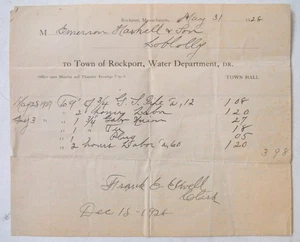 Rockport, Massachusetts, May 31 1926
M Emerson Haskell & Son
Loblolly
TO Town of Rockport, Water Department, DR.
Office open Monday and Thursday Evenings 7 to 8 TOWN HALL
To 9' of 3/4 G. S. Pipe @ .12 1 08
" 2 hours Labor 1 20
Aug 3 " 1 3/4 27
" 1 " Tee 18
" 1 " Plug 05
" 2 hours Labor @ .60 1 20
3 98
Frank E Elwell
Clerk
Dec 15 - 1926